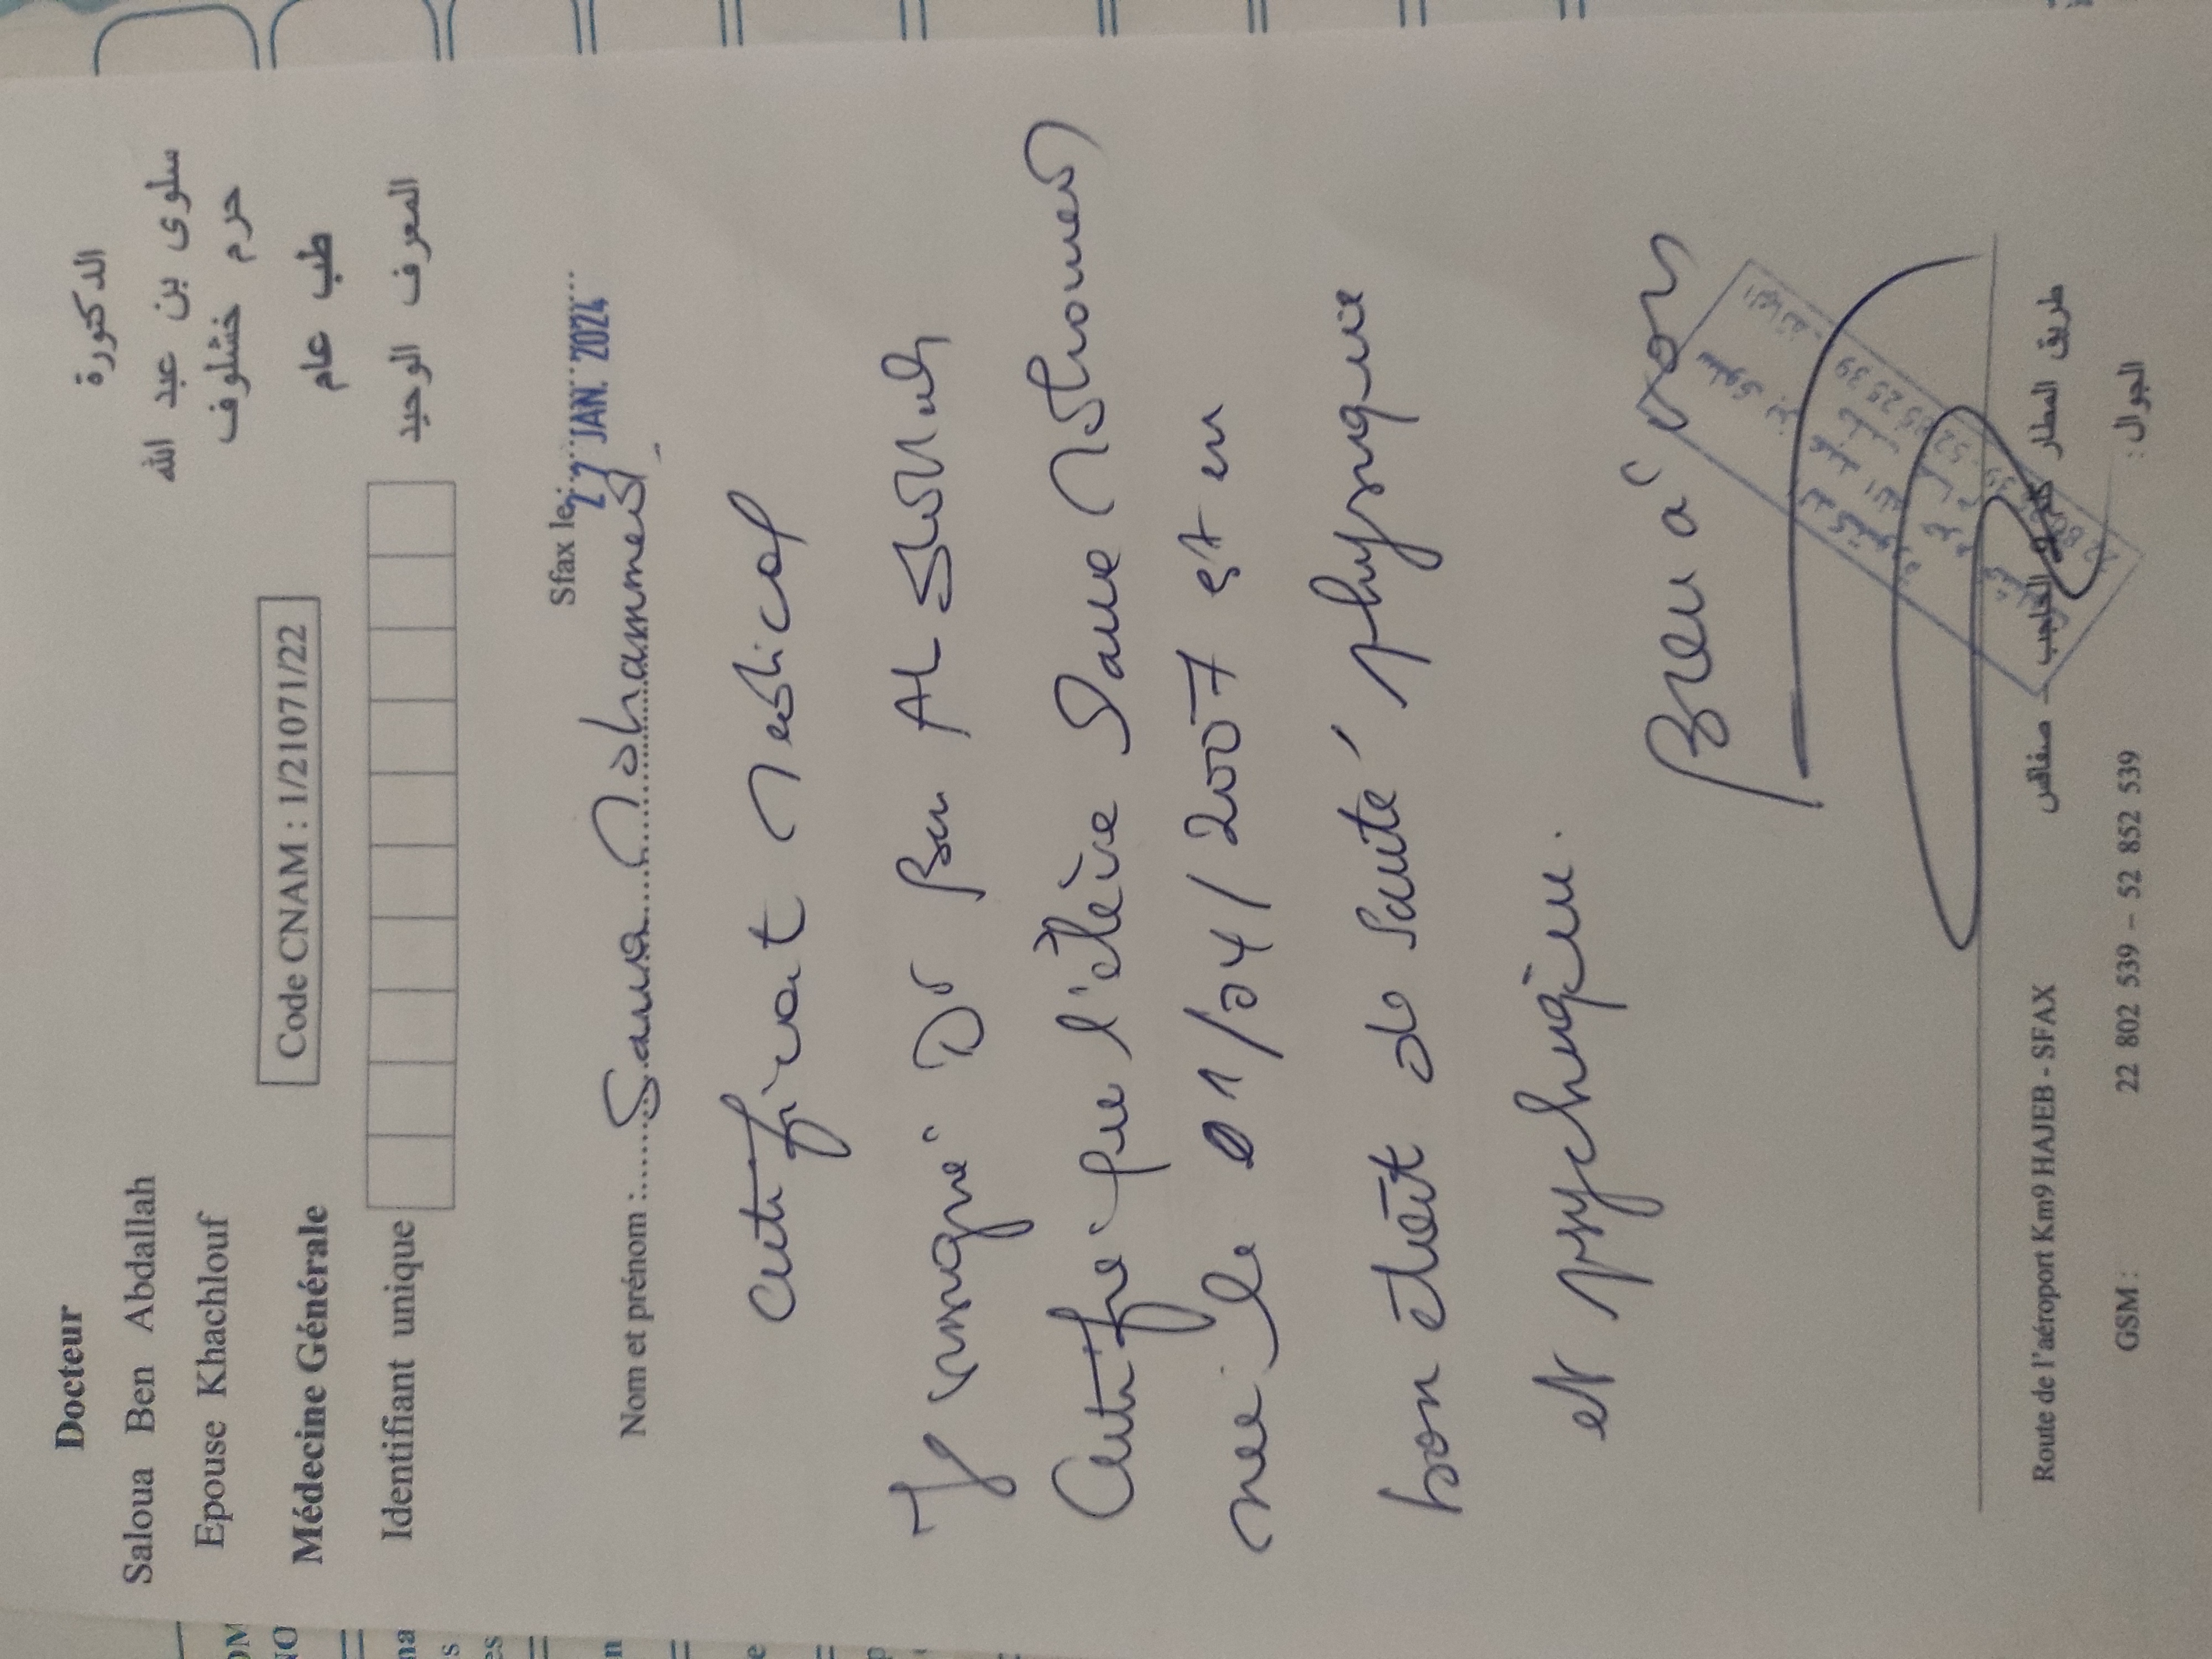 Docteur
Saloua Ben Abdallah
Epouse Khachlouf
Médecine Générale
الدكتورة
سلوى بن عبد الله
حرم خشلوف
طب عام
Code CNAM : 1/21071/22
Identifiant unique
المعرف الوحيد
Sfax le 27 JAN. 2024
Nom et prénom : Sawa Mohammed
Certificat Medical
Je soussigné Dr Ben Abdallah
Certifie que l'élève Sawa Mohamed
née le 01/04/2007 est en
bon état de santé physique
et psychique.
Bien à vous
Route de l'aéroport Km9 HAJEB - SFAX
طريق المطار كلم 9 الحاجب - صفاقس
GSM : 22 802 539 – 52 852 539 الجوال :